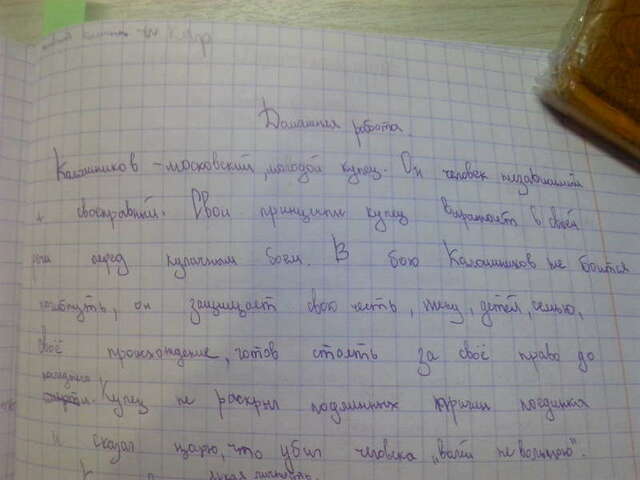 Домашняя работа.
Калашников - московский, молодой купец. Он человек независимый
и своенравный. Свои принципы купец выражает в своей
речи перед кулачным боем. В бою Калашников не боится
погибнуть, он защищает свою честь, жену, детей, семью,
своё происхождение, готов стоять за своё право до
последнего. Купец не раскрыл подлинных причин поединка
и сказал царю, что убил человека „волей не волею".
личность.